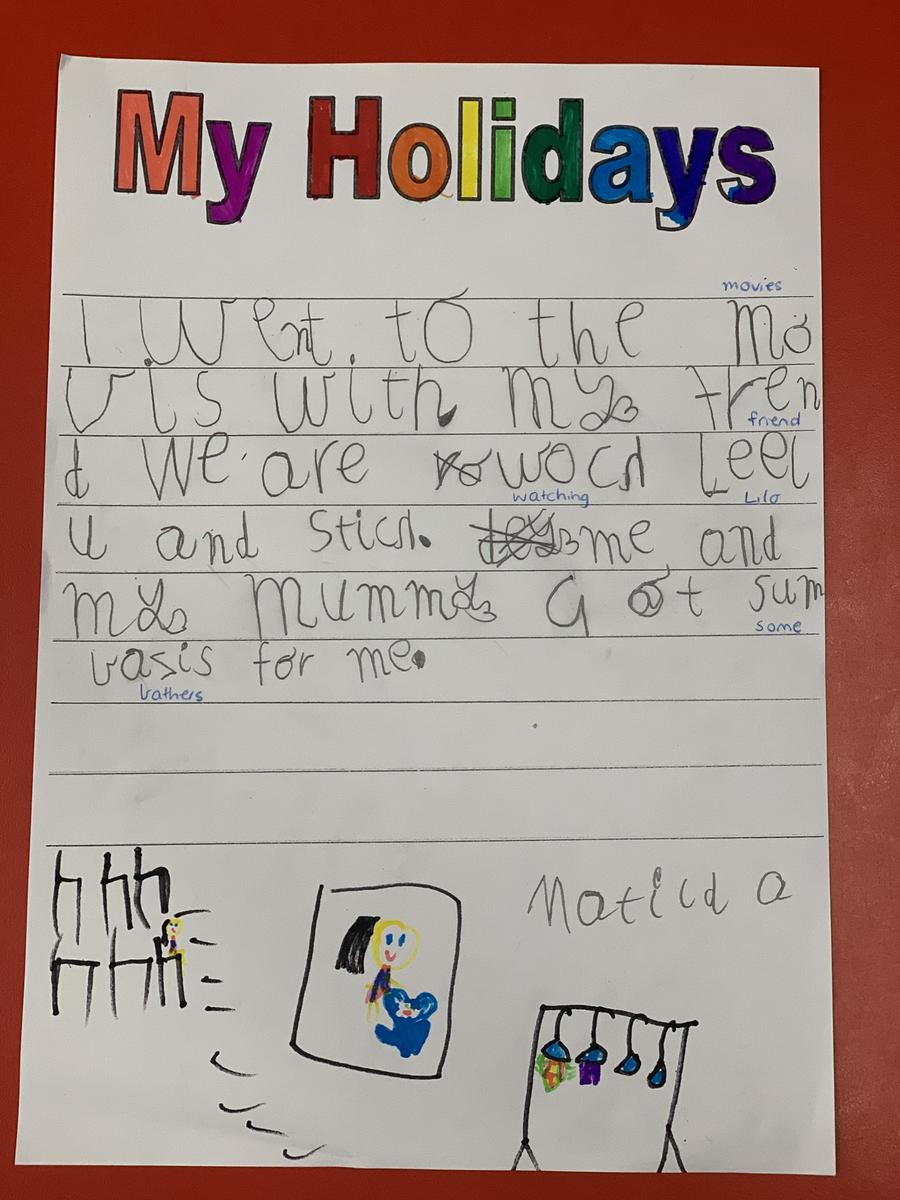 My Holidays
movies
I Went. to the mo
vis with my fren
friend
d We are wocd Leel
watching Lilo
u and Sticd. me and
my mummy Got sum
some
vasis for me.
bathers
Matilda